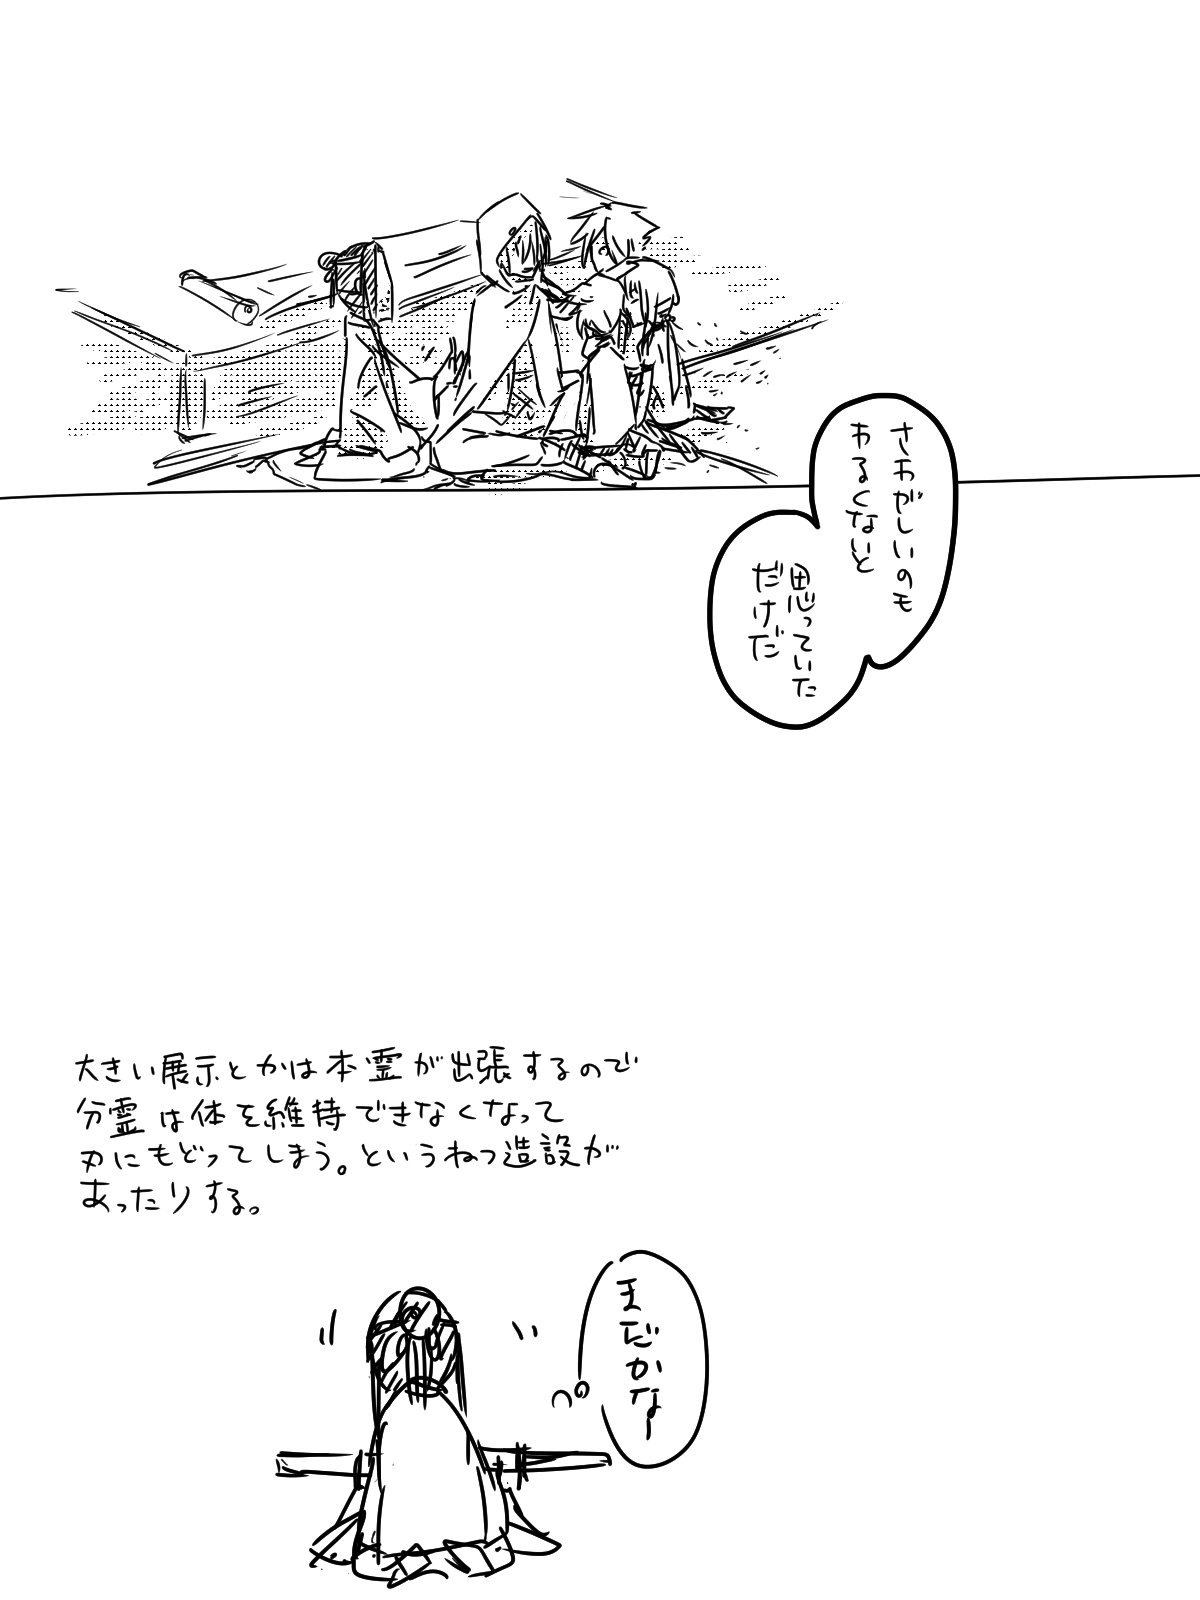 さわがしいのも
わるくないと
思っていた
だけだ
大きい展示とかは本霊が出張するので
分霊は体を維持できなくなって
刃にもどってしまう。というねつ造設が
あったりする。
まだかなー